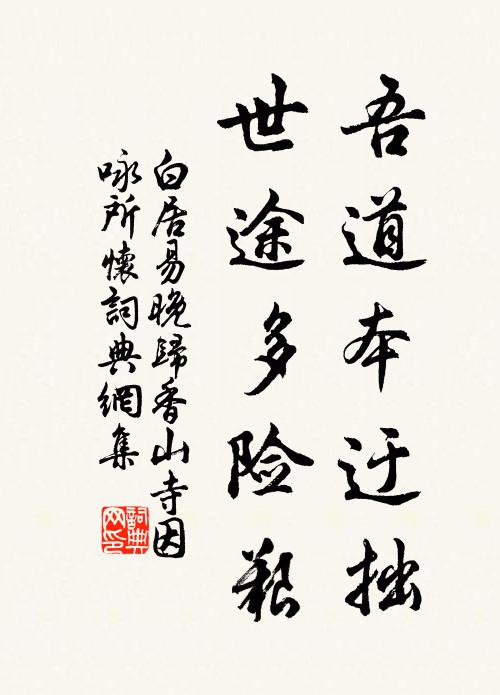 吾道本迂拙
世途多险艱
白居易晚歸香山寺因
詠所懷詞典網集
詞典
网印